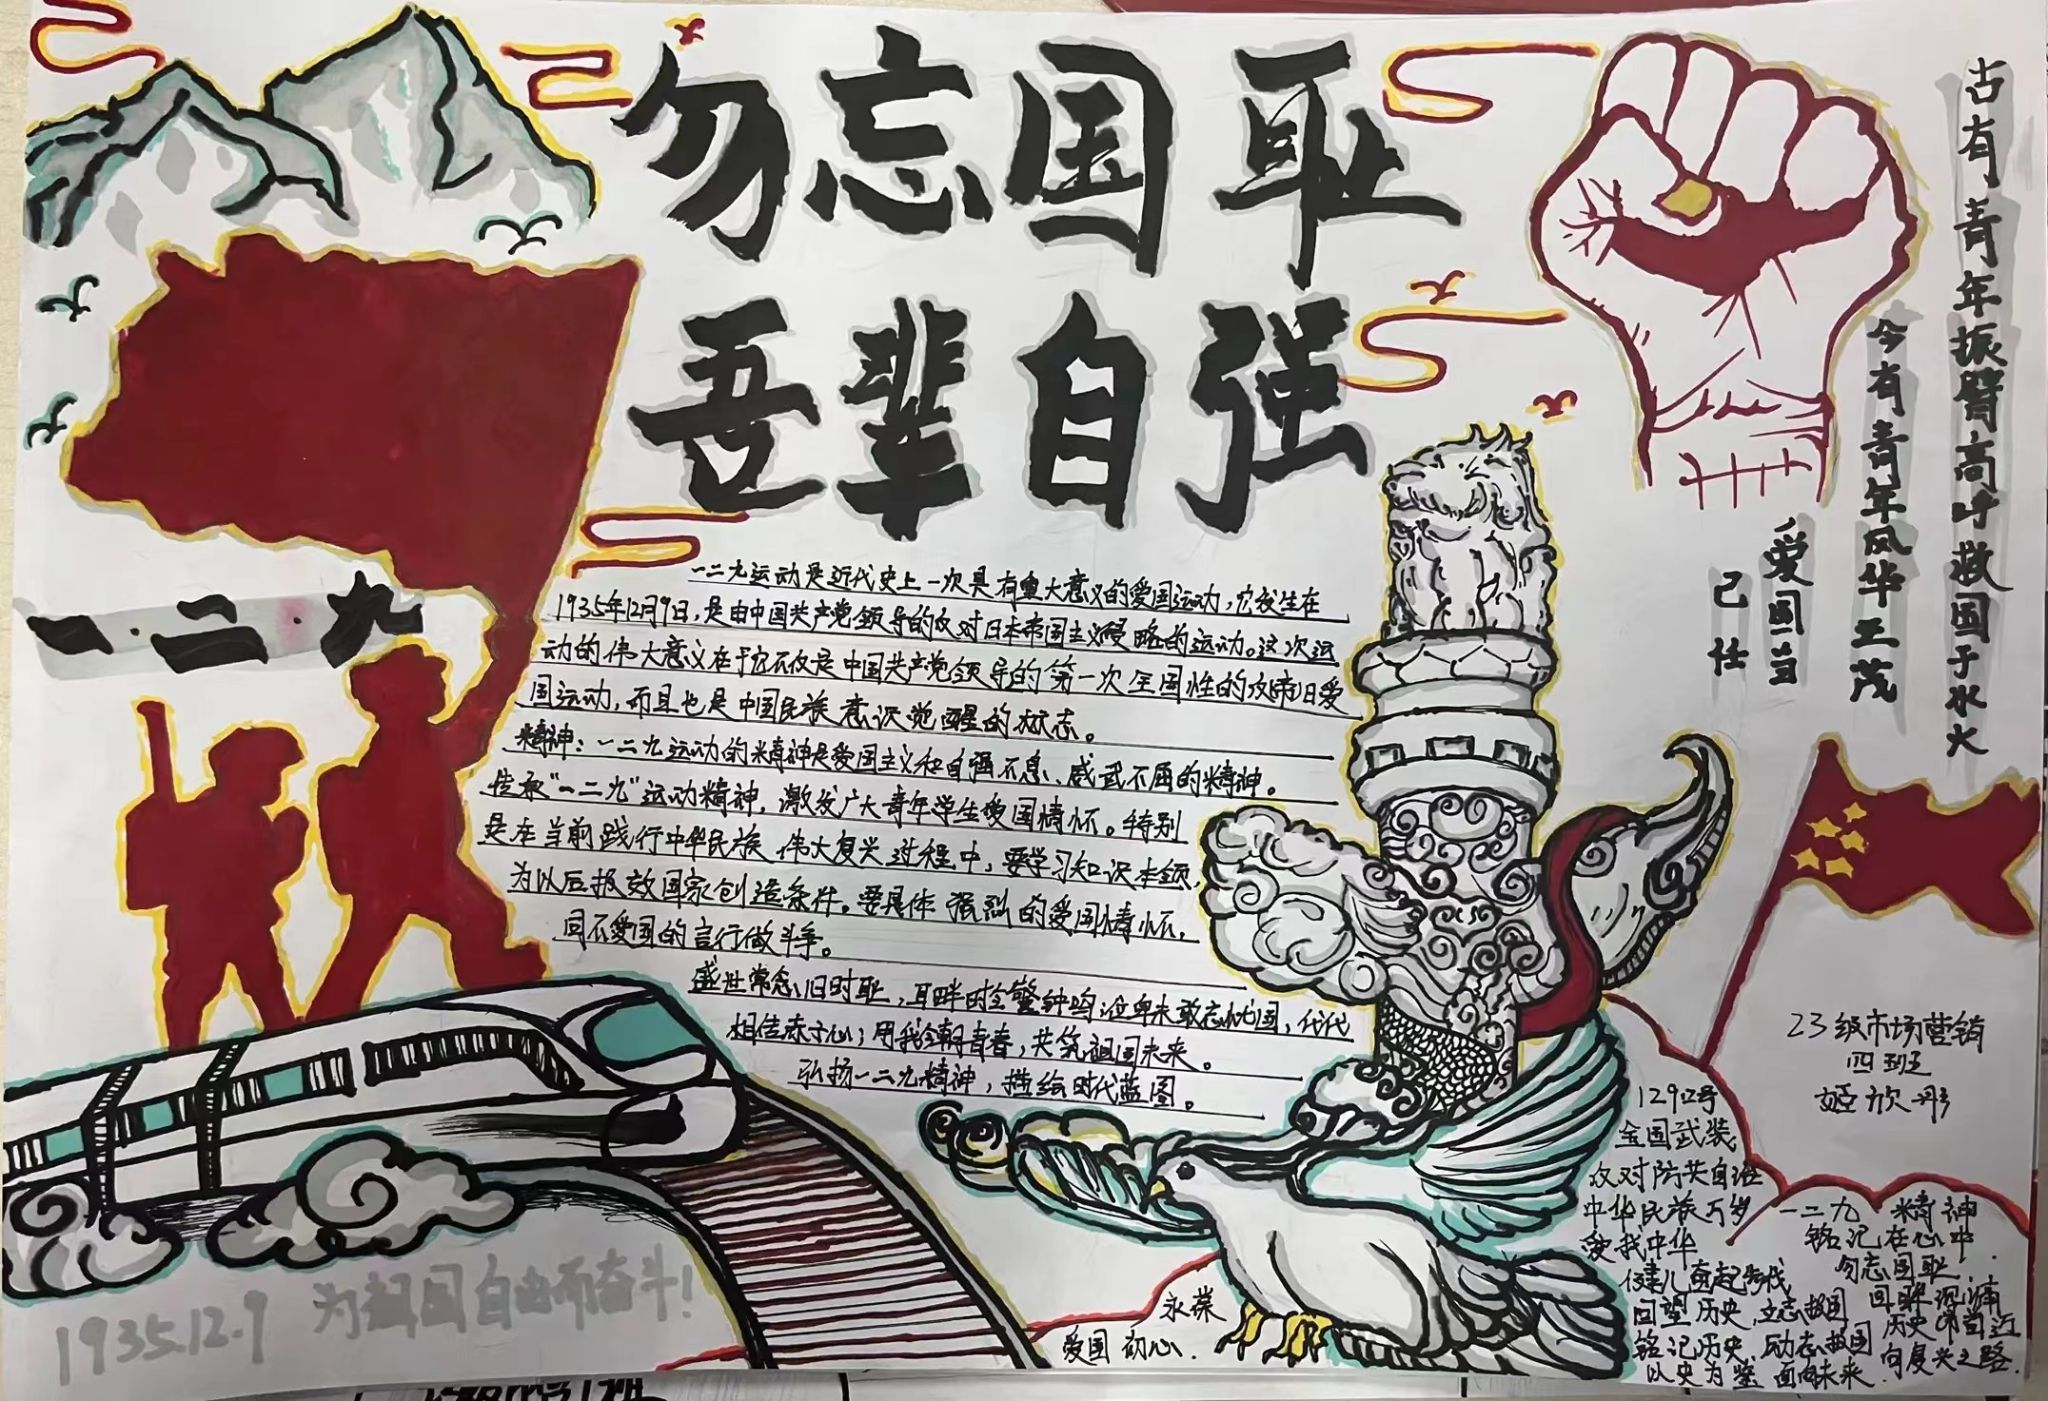 勿忘国耻
吾辈自强
古有青年振臂高呼救国于水火
今有青年风华正茂
爱国当
己任
一·二·九
一二九运动是近代史上一次具有重大意义的爱国运动,它发生在
1935年12月9日,是由中国共产党领导的反对日本帝国主义侵略的运动。这次运
动的伟大意义在于它不仅是中国共产党领导的第一次全国性的反帝旧爱
国运动,而且也是中国民族意识觉醒的标志。
精神:一二九运动的精神是爱国主义和自强不息、威武不屈的精神。
传承“一二九”运动精神,激发广大青年学生爱国情怀。特别
是在当前践行中华民族伟大复兴过程中,要学习知识本领,
为以后报效国家创造条件。要具体强烈的爱国情怀,
同不爱国的言行做斗争。
盛世常念旧时耻,耳畔时全警钟鸣位卑未敢忘忧国,代代
相传赤子心;用我今朝青春,共筑祖国未来。
弘扬一二九精神,描绘时代蓝图。
23级市场营销
四班
姬欣彤
129口号
全国武装
反对防共自治
中华民族万岁
爱我中华
健儿奋起先伐
回望历史,立志报国
铭记历史,励志报国
以史为鉴 面向未来
一二九 精神
铭记在心中.
勿忘国耻
回眸沉浦
历史昂首近
向复兴之路.
永葆
爱国 初心.
1935.12.9 为祖国自由而奋斗!